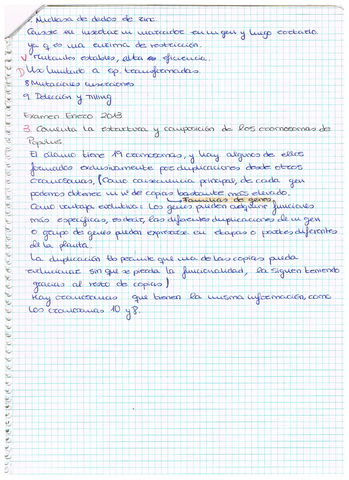 Nucleasa de dedos de zinc.
Consiste en insertar un marcador en un gen y luego cortarlo
ya q es una enzima de restricción.
V Mutantes estables, alta es eficiencia.
D Uso limitado a sp. transformadas
8 Mutaciones inserciones
9. Detección y Tilling
Examen Enero 2013
3. Comenta la estructura y composición de los cromosomas de
Populus
El álamo tiene 19 cromosomas, y hay algunos de ellos
formados exclusivamente por duplicaciones desde otros
cromosomas, (Como consecuencia principal, de cada gen
podemos obtener un nº de copias bastante más elevado.
→ Familias de genes.
Como ventaja evolutiva: Los genes pueden adquirir funciones
más específicas, es decir, las diferentes duplicaciones de un gen
o grupo de genes pueden expresarse en etapas o partes diferentes
de la planta.
La duplicación tb permite que una de las copias pueda
evolucionar sin que se pierda la funcionalidad, (la siguen teniendo
gracias al resto de copias)
Hay cromosomas que tienen la misma información, como
los cromosomas 10 y 8.